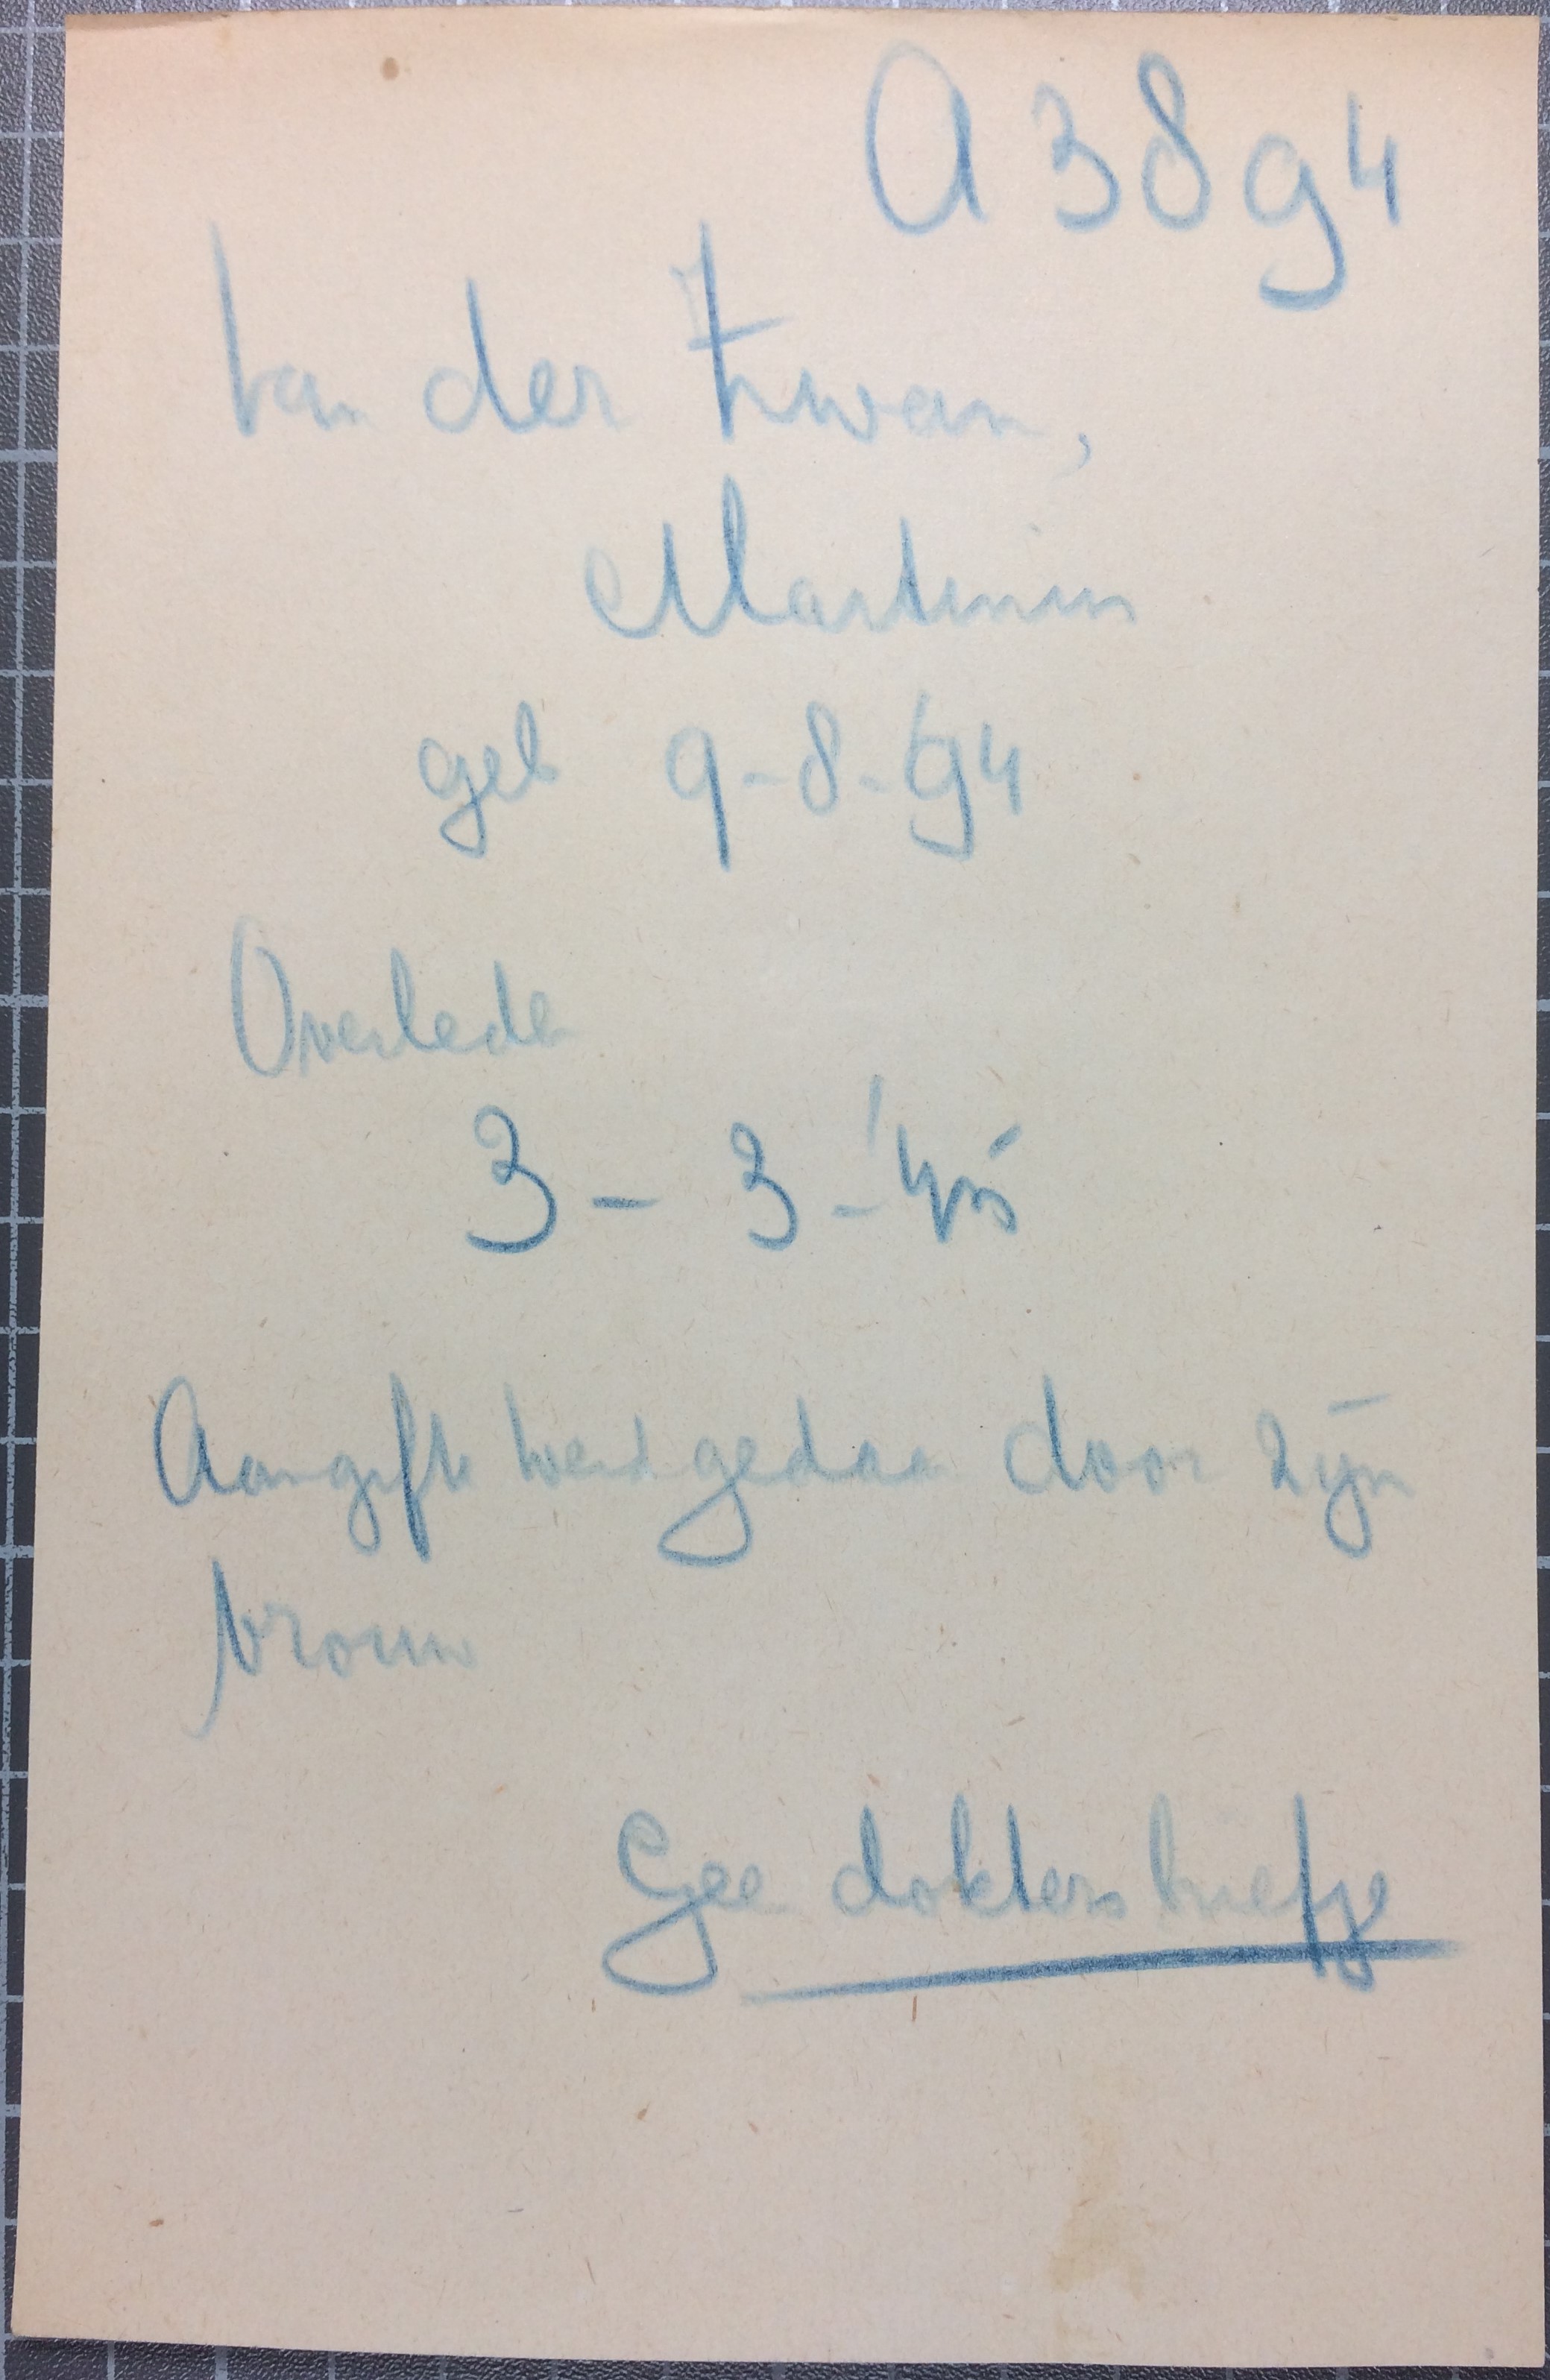 A3894
Van der Zwan,
Martinus
geb 9-8-'94
Overleden
3 - 3 - '45
Aangifte werd gedaan door zijn
vrouw
Geen doktersbriefje